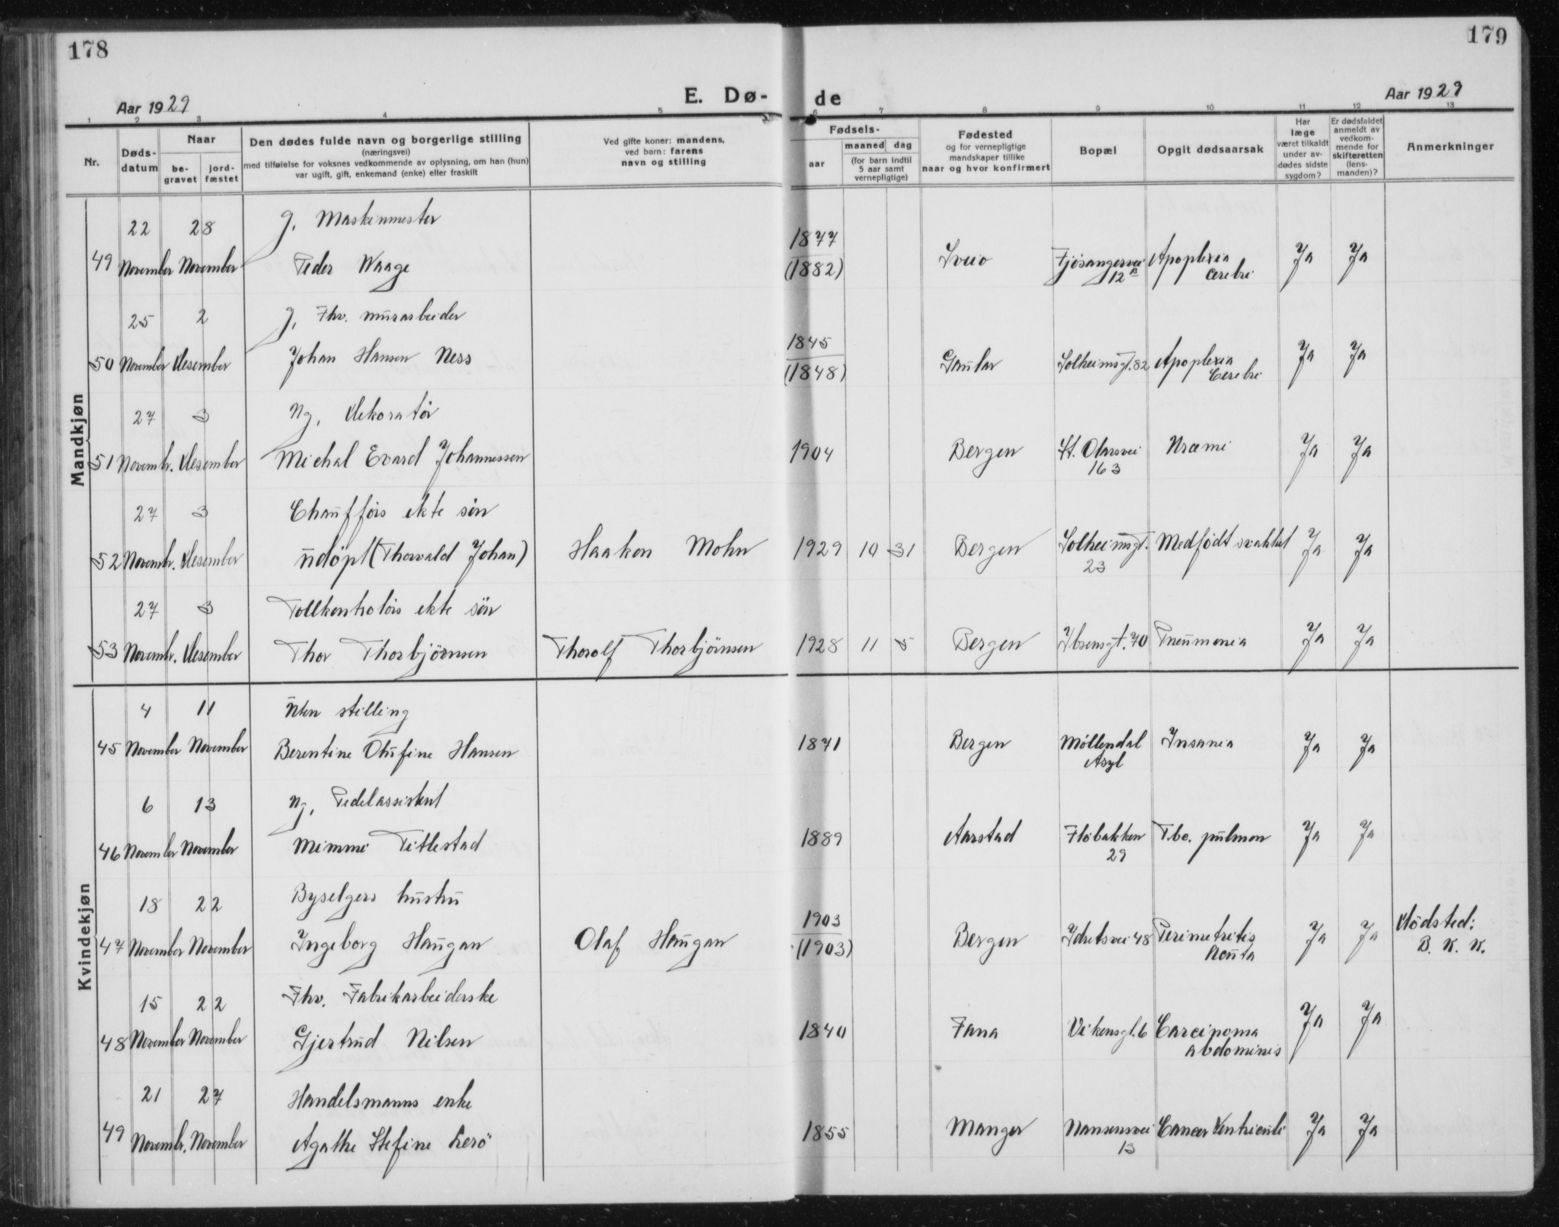 178
179
E. Dø- de
Aar 1929
Aar 1929
1 2 3 4 5 6 7 8 9 10 11 12 13
Nr.
Døds-
datum
Naar
be-
gravet
jord-
fæstet
Den dødes fulde navn og borgerlige stilling
(næringsvei)
med tilføielse for voksnes vedkommende av oplysning, om han (hun)
var ugift, gift, enkemand (enke) eller fraskilt
Ved gifte koner: mandens,
ved barn: farens
navn og stilling
Fødsels-
aar
maaned dag
(for barn indtil
5 aar samt
vernepligtige)
Fødested
og for vernepligtige
mandskaper tillike
naar og hvor konfirmert
Bopæl
Opgit dødsaarsak
Har
læge
været tilkaldt
under av-
dødes sidste
sygdom?
Er dødsfaldet
anmeldt av
vedkom-
mende for
skifteretten
(lens-
manden)?
Anmerkninger
Mandkjøn
22 28 g. Maskinmester 1877
49 November November Peder Waage (1882) Sveio Fjösangervei Apoplexia Ja Ja
12a cerebri
25 2 g. Fhv. murarbeider 1845
50 November Desember Johan Hansen Ness (1848) Gaular Solheimsgt. 82 Apoplexia Ja Ja
Cerebri
27 3 ug. Dekoratör
51 Novembr. Desember Michal Evard Johannessen 1904 Bergen St. Olavsvei Uræmi Ja Ja
163
27 3 Chaufförs ekte sön
52 Novembr. Desember udöpt (Thorvald Johan) Haakon Mohn 1929 10 31 Bergen Solheimsgt. Medfödt svakhet Ja Ja
23
27 3 Tollkontrolörs ekte sön
53 Novembr. Desember Thor Thorbjörnsen Thorolf Thorbjörnsen 1928 11 5 Bergen Ibsensgt. 70 Pneumonia Ja Ja
Kvindekjøn
4 11 Uten stilling
45 November November Berentine Olufine Hansen 1871 Bergen Möllendal Insania Ja Ja
Asyl
6 13 ug. Pedelassistent
46 November November Mimmi Titlestad 1889 Aarstad Flöbakken Tbc. pulmon Ja Ja
29
18 22 Byselgers hustru 1903
47 November November Ingeborg Haugan Olaf Haugan (1903) Bergen Idretsvei 48 Perimetritis Ja Ja Dödsted:
acuta B. K. K.
15 22 Fhv. Fabrikarbeiderske
48 November November Gjertrud Nilsen 1840 Fana Vikensgt. 6 Carcinoma Ja Ja
abdominis
21 27 Handelsmanns enke
49 Novembr. November Agathe Stefine Lerö 1855 Manger Nansensvei Cancer Ventriculi Ja Ja
13